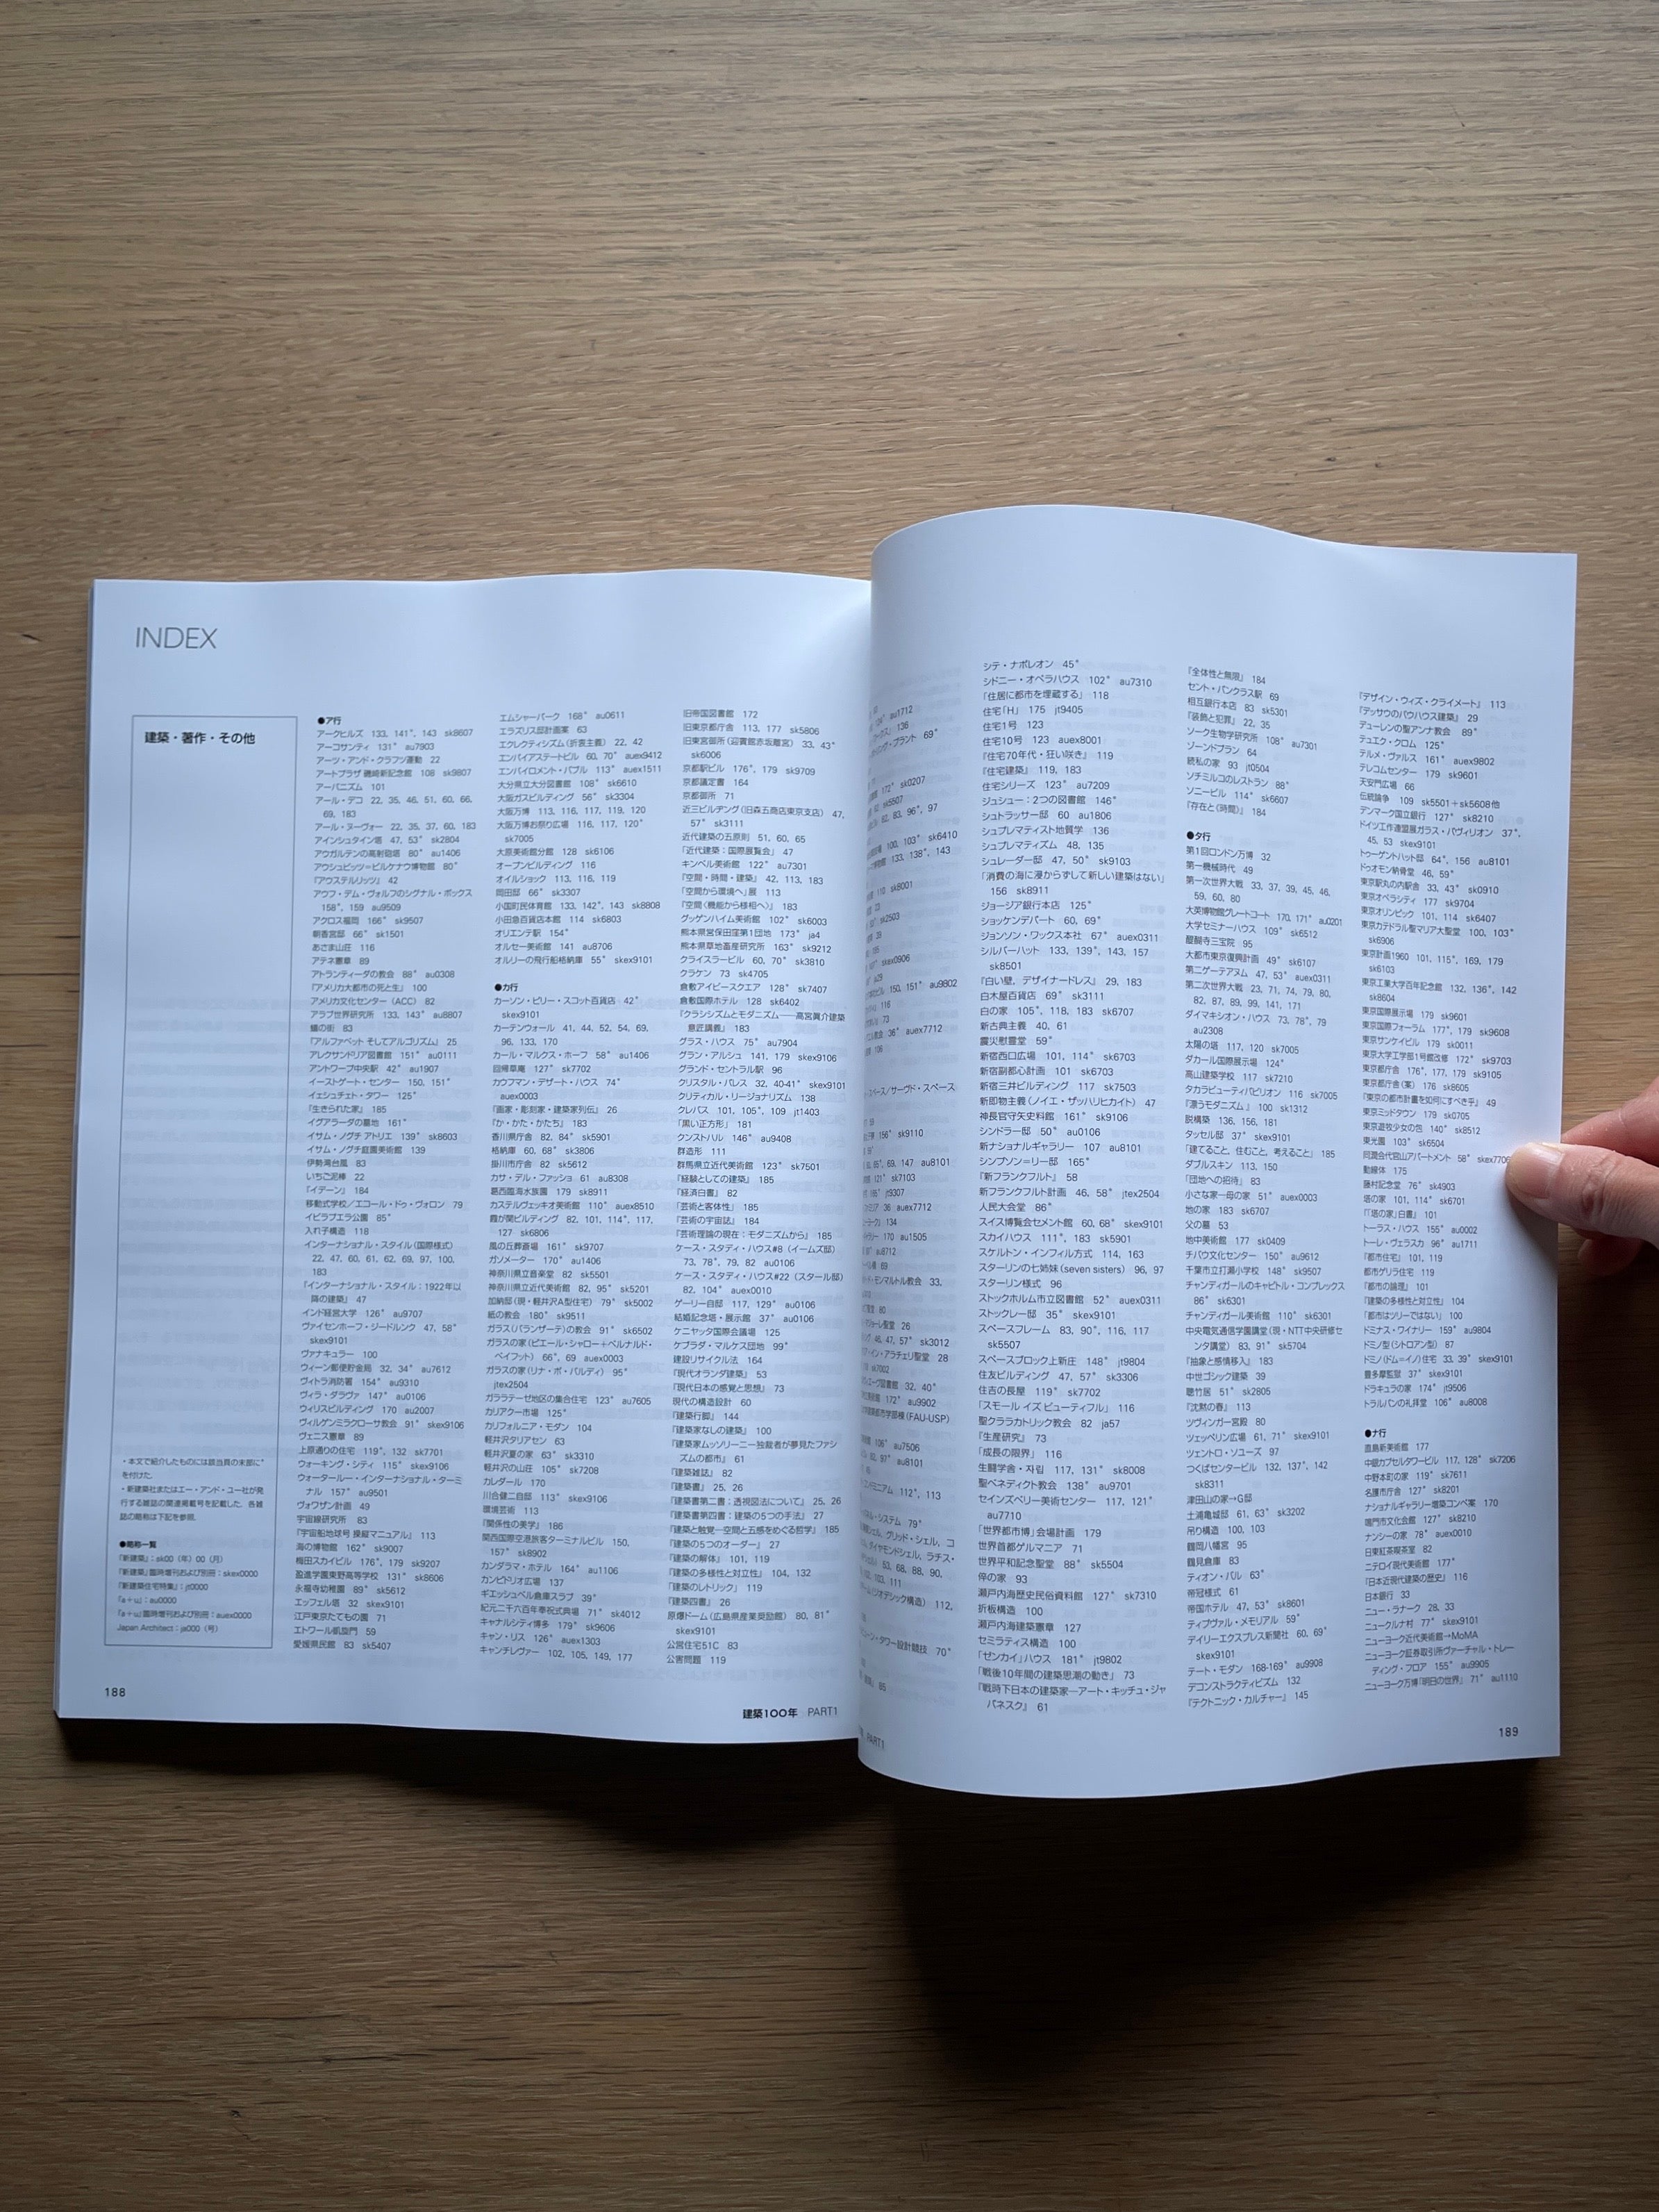 INDEX
建築・著作・その他
・本文で紹介したものには該当頁の末部に*
を付けた.
・新建築社またはエー・アンド・ユー社が発
行する雑誌の関連掲載号を記載した. 各雑
誌の略称は下記を参照.
●略称一覧
『新建築』：sk00（年）00（月）
『新建築』臨時増刊および別冊：skex0000
『新建築住宅特集』：jt0000
『a+u』：au0000
『a+u』臨時増刊および別冊：auex0000
Japan Architect：ja000（号）
188
●ア行
アークヒルズ 133, 141*, 143 sk8607
アーコサンティ 131* au7903
アーツ・アンド・クラフツ運動 22
アートプラザ 磯崎新記念館 108 sk9807
アーバニズム 101
アール・デコ 22, 35, 46, 51, 60, 66,
69, 183
アール・ヌーヴォー 22, 35, 37, 60, 183
アインシュタイン塔 47, 53* sk2804
アウガルテンの高射砲塔 80* au1406
アウシュビッツ＝ビルケナウ博物館 80*
『アウステルリッツ』 42
アウフ・デム・ヴォルフのシグナル・ボックス
158*, 159 au9509
アクロス福岡 166* sk9507
朝香宮邸 66* sk1501
あさま山荘 116
アテネ憲章 89
アトランティーダの教会 88* au0308
『アメリカ大都市の死と生』 100
アメリカ文化センター（ACC） 82
アラブ世界研究所 133, 143* au8807
蟻の街 83
『アルファベット そしてアルゴリズム』 25
アレクサンドリア図書館 151* au0111
アントワープ中央駅 42* au1907
イーストゲート・センター 150, 151*
イェシュチェト・タワー 125*
『生きられた家』 185
イグアラーダの墓地 161*
イサム・ノグチ アトリエ 139* sk8603
イサム・ノグチ庭園美術館 139
伊勢湾台風 83
いちご泥棒 22
『イデーン』 184
移動式学校／エコール・ドゥ・ヴォロン 79
イビラプエラ公園 85*
入れ子構造 118
インターナショナル・スタイル（国際様式）
22, 47, 60, 61, 62, 69, 97, 100,
183
『インターナショナル・スタイル：1922年以
降の建築』 47
インド経営大学 126* au9707
ヴァイセンホーフ・ジードルンク 47, 58*
skex9101
ヴァナキュラー 100
ウィーン郵便貯金局 32, 34* au7612
ヴィトラ消防署 154* au9310
ヴィラ・ダラヴァ 147* au0106
ウィリスビルディング 170 au2007
ヴィルゲンミラクローサ教会 91* skex9106
ヴェニス憲章 89
上原通りの住宅 119*, 132 sk7701
ウォーキング・シティ 115* skex9106
ウォータールー・インターナショナル・ターミ
ナル 157* au9501
ヴォワザン計画 49
宇宙線研究所 83
『宇宙船地球号 操縦マニュアル』 113
海の博物館 162* sk9007
梅田スカイビル 176*, 179 sk9207
盈進学園東野高等学校 131* sk8606
永福寺幼稚園 89* sk5612
エッフェル塔 32 skex9101
江戸東京たてもの園 71
エトワール凱旋門 59
愛媛県民館 83 sk5407
エムシャーパーク 168* au0611
エラズリス邸計画案 63
エクレクティシズム（折衷主義） 22, 42
エンパイアステートビル 60, 70* auex9412
エンバイロメント・バブル 113* auex1511
大分県立大分図書館 108* sk6610
大阪ガスビルディング 56* sk3304
大阪万博 113, 116, 117, 119, 120
大阪万博お祭り広場 116, 117, 120*
sk7005
大原美術館分館 128 sk6106
オープンビルディング 116
オイルショック 113, 116, 119
岡田邸 66* sk3307
小国町民体育館 133, 142*, 143 sk8808
小田急百貨店本館 114 sk6803
オリエンテ駅 154*
オルセー美術館 141 au8706
オルリーの飛行船格納庫 55* skex9101
●カ行
カーソン・ピリー・スコット百貨店 42*
skex9101
カーテンウォール 41, 44, 52, 54, 69,
96, 133, 170
カール・マルクス・ホーフ 58* au1406
回帰草庵 127* sk7702
カウフマン・デザート・ハウス 74*
auex0003
『画家・彫刻家・建築家列伝』 26
『か・かた・かたち』 183
香川県庁舎 82, 84* sk5901
格納庫 60, 68* sk3806
掛川市庁舎 82 sk5612
カサ・デル・ファッショ 61 au8308
葛西臨海水族園 179 sk8911
カステルヴェッキオ美術館 110* auex8510
霞が関ビルディング 82, 101, 114*, 117,
127 sk6806
風の丘葬斎場 161* sk9707
ガソメーター 170* au1406
神奈川県立音楽堂 82 sk5501
神奈川県立近代美術館 82, 95* sk5201
加納邸（現・軽井沢A型住宅） 79* sk5002
紙の教会 180* sk9511
ガラス（バランザーテ）の教会 91* sk6502
ガラスの家（ピエール・シャロー＋ベルナルド・
ベイフット） 66*, 69 auex0003
ガラスの家（リナ・ボ・バルディ） 95*
jtex2504
ガララテーゼ地区の集合住宅 123* au7605
カリアクー市場 125*
カリフォルニア・モダン 104
軽井沢タリアセン 63
軽井沢夏の家 63* sk3310
軽井沢の山荘 105* sk7208
カレダール 170
川合健二自邸 113* skex9106
環境芸術 113
『関係性の美学』 186
関西国際空港旅客ターミナルビル 150,
157* sk8902
カンダラマ・ホテル 164* au1106
カンピドリオ広場 137
ギエッシュベル倉庫スラブ 39*
紀元二千六百年奉祝式典場 71* sk4012
キャナルシティ博多 179* sk9606
キャン・リス 126* auex1303
キャンチレヴァー 102, 105, 149, 177
旧帝国図書館 172
旧東京都庁舎 113, 177 sk5806
旧東宮御所（迎賓館赤坂離宮） 33, 43*
sk6006
京都駅ビル 176*, 179 sk9709
京都議定書 164
京都御所 71
近三ビルヂング（旧森五商店東京支店） 47,
57* sk3111
近代建築の五原則 51, 60, 65
「近代建築：国際展覧会」 47
キンベル美術館 122* au7301
『空間・時間・建築』 42, 113, 183
「空間から環境へ」展 113
『空間〈機能から様相へ〉』 183
グッゲンハイム美術館 102* sk6003
熊本県営保田窪第1団地 173* ja4
熊本県草地畜産研究所 163* sk9212
クライスラービル 60, 70* sk3810
クラケン 73 sk4705
倉敷アイビースクエア 128* sk7407
倉敷国際ホテル 128 sk6402
『クラシシズムとモダニズム――高宮眞介建築
意匠講義』 183
グラス・ハウス 75* au7904
グラン・アルシュ 141, 179 skex9106
グランド・セントラル駅 96
クリスタル・パレス 32, 40-41* skex9101
クリティカル・リージョナリズム 138
クレバス 101, 105*, 109 jt1403
「黒い正方形」 181
クンストハル 146* au9408
群造形 111
群馬県立近代美術館 123* sk7501
『経験としての建築』 185
『経済白書』 82
『芸術と客体性』 185
『芸術の宇宙誌』 184
『芸術理論の現在：モダニズムから』 185
ケース・スタディ・ハウス#8（イームズ邸）
73, 78*, 79, 82 au0106
ケース・スタディ・ハウス#22（スタール邸）
82, 104* auex0010
ゲーリー自邸 117, 129* au0106
結婚記念塔・展示館 37* au0106
ケニヤッタ国際会議場 125
ケブラダ・マルケス団地 99*
建設リサイクル法 164
『現代オランダ建築』 53
『現代日本の感覚と思想』 73
現代の構造設計 60
『建築行脚』 144
『建築家なしの建築』 100
『建築家ムッソリーニー独裁者が夢見たファシ
ズムの都市』 61
『建築雑誌』 82
『建築書』 25, 26
『建築書第二書：透視図法について』 25, 26
『建築書第四書：建築の5つの手法』 27
『建築と触覚―空間と五感をめぐる哲学』 185
『建築の5つのオーダー』 27
『建築の解体』 101, 119
『建築の多様性と対立性』 104, 132
『建築のレトリック』 119
『建築四書』 26
原爆ドーム（広島県産業奨励館） 80, 81*
skex9101
公営住宅51C 83
公害問題 119
建築100年 PART1
シテ・ナポレオン 45*
シドニー・オペラハウス 102* au7310
「住居に都市を埋蔵する」 118
住宅「H」 175 jt9405
住宅1号 123
住宅10号 123 auex8001
「住宅70年代・狂い咲き」 119
『住宅建築』 119, 183
住宅シリーズ 123* au7209
ジュシュー：2つの図書館 146*
シュトラッサー邸 60 au1806
シュプレマティスト地質学 136
シュプレマティズム 48, 135
シュレーダー邸 47, 50* sk9103
「消費の海に浸からずして新しい建築はない」
156 sk8911
ジョージア銀行本店 125*
ショッケンデパート 60, 69*
ジョンソン・ワックス本社 67* auex0311
シルバーハット 133, 139*, 143, 157
sk8501
『白い壁、デザイナードレス』 29, 183
白木屋百貨店 69* sk3111
白の家 105*, 118, 183 sk6707
新古典主義 40, 61
震災慰霊堂 59*
新宿西口広場 101, 114* sk6703
新宿副都心計画 101 sk6703
新宿三井ビルディング 117 sk7503
新即物主義（ノイエ・ザッハリヒカイト） 47
神長官守矢史料館 161* sk9106
シンドラー邸 50* au0106
新ナショナルギャラリー 107 au8101
シンプソン＝リー邸 165*
『新フランクフルト』 58
新フランクフルト計画 46, 58* jtex2504
人民大会堂 86*
スイス博覧会セメント館 60, 68* skex9101
スカイハウス 111*, 183 sk5901
スケルトン・インフィル方式 114, 163
スターリンの七姉妹（seven sisters） 96, 97
スターリン様式 96
ストックホルム市立図書館 52* auex0311
ストックレー邸 35* skex9101
スペースフレーム 83, 90*, 116, 117
sk5507
スペースブロック上新庄 148* jt9804
住友ビルディング 47, 57* sk3306
住吉の長屋 119* sk7702
『スモール イズ ビューティフル』 116
聖クララカトリック教会 82 ja57
『生産研究』 73
『成長の限界』 116
生闘学舎・자립 117, 131* sk8008
聖ベネディクト教会 138* au9701
セインズベリー美術センター 117, 121*
au7710
「世界都市博」会場計画 179
世界首都ゲルマニア 71
世界平和記念聖堂 88* sk5504
倅の家 93
瀬戸内海歴史民俗資料館 127* sk7310
折板構造 100
瀬戸内海建築憲章 127
セミラティス構造 100
「ゼンカイ」ハウス 181* jt9802
「戦後10年間の建築思潮の動き」 73
『戦時下日本の建築家―アート・キッチュ・ジャ
パネスク』 61
『全体性と無限』 184
セント・パンクラス駅 69
相互銀行本店 83 sk5301
『装飾と犯罪』 22, 35
ソーク生物学研究所 108* au7301
ゾーンドプラン 64
続私の家 93 jt0504
ソチミルコのレストラン 88*
ソニービル 114* sk6607
『存在と〈時間〉』 184
●タ行
第1回ロンドン万博 32
第一機械時代 49
第一次世界大戦 33, 37, 39, 45, 46,
59, 60, 80
大英博物館グレートコート 170, 171* au0201
大学セミナーハウス 109* sk6512
醍醐寺三宝院 95
大都市東京復興計画 49* sk6107
第二ゲーテアヌム 47, 53* auex0311
第二次世界大戦 23, 71, 74, 79, 80,
82, 87, 89, 99, 141, 171
ダイマキシオン・ハウス 73, 78*, 79
au2308
太陽の塔 117, 120 sk7005
ダカール国際展示場 124*
高山建築学校 117 sk7210
タカラビューティパビリオン 116 sk7005
『漂うモダニズム』 100 sk1312
脱構築 136, 156, 181
タッセル邸 37* skex9101
「建てること、住むこと、考えること」 185
ダブルスキン 113, 150
「団地への招待」 83
小さな家―母の家 51* auex0003
地の家 183 sk6707
父の墓 53
地中美術館 177 sk0409
チバウ文化センター 150* au9612
千葉市立打瀬小学校 148* sk9507
チャンディガールのキャピトル・コンプレックス
86* sk6301
チャンディガール美術館 110* sk6301
中央電気通信学園講堂（現・NTT中央研修セ
ンタ講堂） 83, 91* sk5704
『抽象と感情移入』 183
中世ゴシック建築 39
聴竹居 51* sk2805
『沈黙の春』 113
ツヴィンガー宮殿 80
ツェッペリン広場 61, 71* skex9101
ツェントロ・ソユーズ 97
つくばセンタービル 132, 137*, 142
sk8311
津田山の家→G邸
土浦亀城邸 61, 63* sk3202
吊り構造 100, 103
鶴岡八幡宮 95
鶴見倉庫 83
ティオン・バル 63*
帝冠様式 61
帝国ホテル 47, 53* sk8601
ティプヴァル・メモリアル 59*
デイリーエクスプレス新聞社 60, 69*
skex9101
テート・モダン 168-169* au9908
デコンストラクティビズム 132
『テクトニック・カルチャー』 145
『デザイン・ウィズ・クライメート』 113
『デッサウのバウハウス建築』 29
デューレンの聖アンナ教会 89*
デュエク・クロム 125*
テルメ・ヴァルス 161* auex9802
テレコムセンター 179 sk9601
天安門広場 66
伝統論争 109 sk5501＋sk5608他
デンマーク国立銀行 127* sk8210
ドイツ工作連盟展ガラス・パヴィリオン 37*,
45, 53 skex9101
トゥーゲントハット邸 64*, 156 au8101
ドゥオモン納骨堂 46, 59*
東京駅丸の内駅舎 33, 43* sk0910
東京オペラシティ 177 sk9704
東京オリンピック 101, 114 sk6407
東京カテドラル聖マリア大聖堂 100, 103*
sk6906
東京計画1960 101, 115*, 169, 179
sk6103
東京工業大学百年記念館 132, 136*, 142
sk8604
東京国際展示場 179 sk9601
東京国際フォーラム 177*, 179 sk9608
東京サンケイビル 179 sk0011
東京大学工学部1号館改修 172* sk9703
東京都庁舎 176*, 177, 179 sk9105
東京都庁舎（案） 176 sk8605
『東京の都市計畫を如何にすべき乎』 49
東京ミッドタウン 179 sk0705
東京遊牧少女の包 140* sk8512
東光園 103* sk6504
同潤会代官山アパートメント 58* skex7706
動線体 175
藤村記念堂 76* sk4903
塔の家 101, 114* sk6701
「『塔の家』白書」 101
トーラス・ハウス 155* au0002
トーレ・ヴェラスカ 96* au1711
『都市住宅』 101, 119
都市ゲリラ住宅 119
『都市の論理』 101
『建築の多様性と対立性』 104
「都市はツリーではない」 100
ドミナス・ワイナリー 159* au9804
ドミノ型（シトロアン型） 87
ドミノ（ドム＝イノ）住宅 33, 39* skex9101
豊多摩監獄 37* skex9101
ドラキュラの家 174* jt9506
トラルパンの礼拝堂 106* au8008
●ナ行
直島新美術館 177
中銀カプセルタワービル 117, 128* sk7206
中野本町の家 119* sk7611
名護市庁舎 127* sk8201
ナショナルギャラリー増築コンペ案 170
鳴門市文化会館 127* sk8210
ナンシーの家 78* auex0010
日東紅茶喫茶室 82
ニテロイ現代美術館 177*
『日本近現代建築の歴史』 116
日本銀行 33
ニュー・ラナーク 28, 33
ニュークルナ村 77* skex9101
ニューヨーク近代美術館→MoMA
ニューヨーク証券取引所ヴァーチャル・トレー
ディング・フロア 155* au9905
ニューヨーク万博「明日の世界」 71* au1110
189